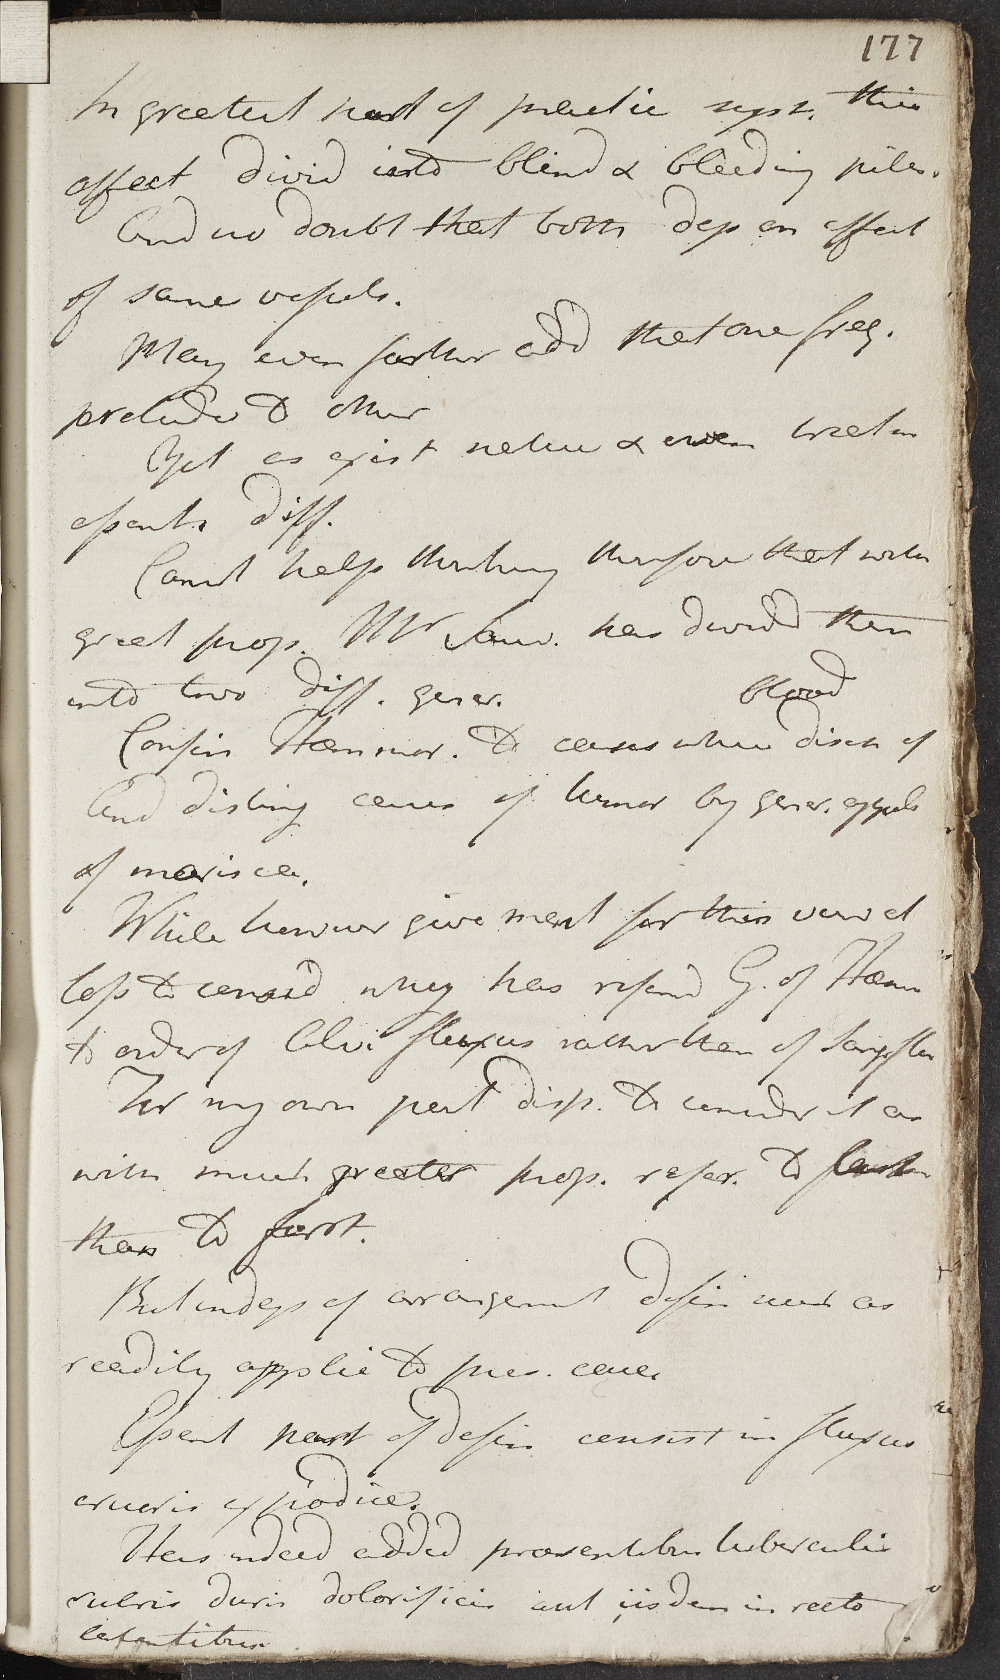 177
In greatest part of practic syst. this
affect divid into blind & bleeding piles.
And no doubt that both dep on affect
of same vessels.
May even farther add that one freq.
prelude to other
Yet as exist nature & even treatm
essent. diff.
Canot help thinking therefore that with
great prop. Mr Sauv. has divided them
into two diff. gener.
blood
Confin Hæmmor. to cases where disch of
And disting cases of tumor by gener. appel
of marisca.
While however give merit for this
less to consid why has refered G. of Hæm
to order of Alvi fluxus rather than of Sangflux
For my own part disp. to consider it as
with much greater prop. refer. to
than to first.
But indep of arrangement defin much as
readily applic to pres. case.
Essent part of defin consist in fluxus
cruoris
Has indeed added præsentibus tuberculis
rubris duris dolorificis aut iisdem in recto
latentibus